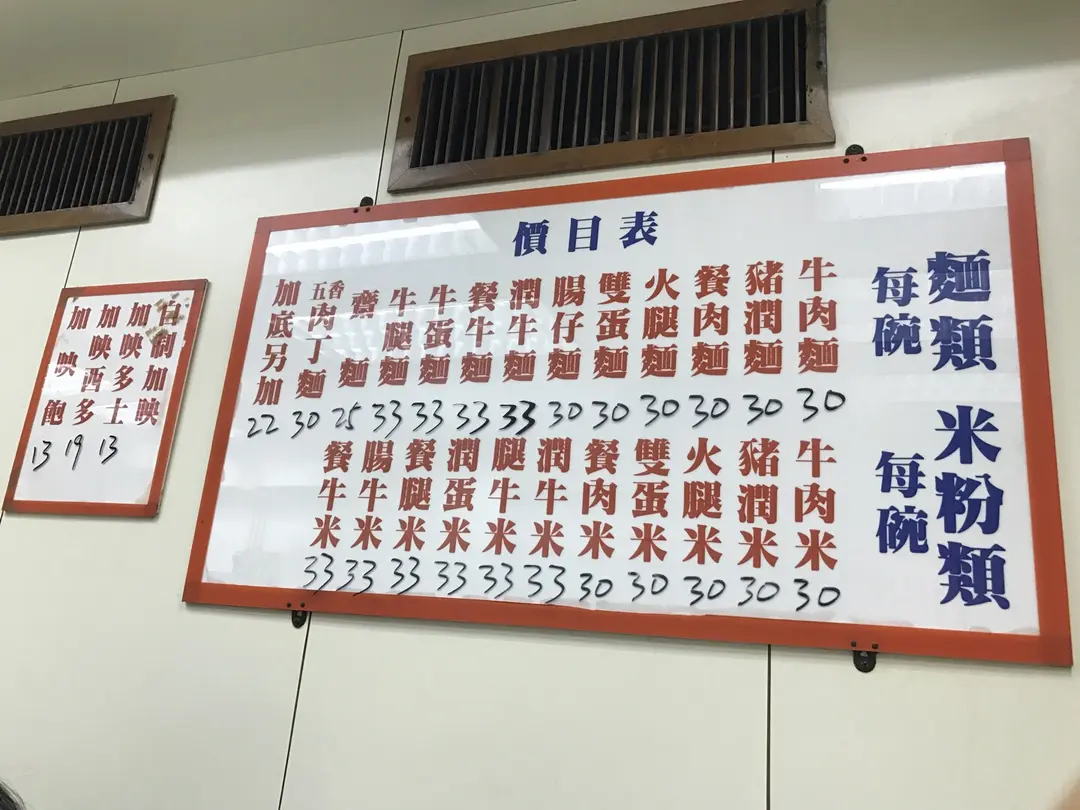 價目表
麵類
每碗
牛肉麵 30
豬潤麵 30
餐肉麵 30
火腿麵 30
雙蛋麵 30
腸仔麵 30
潤牛麵 33
餐牛麵 33
牛蛋麵 33
牛腿麵 33
齋麵 25
五香肉丁麵 30
加底另加 22
米粉類
每碗
牛肉米 30
豬潤米 30
火腿米 30
雙蛋米 30
餐肉米 30
潤牛米 33
腿牛米 33
潤蛋米 33
餐腿米 33
腸牛米 33
餐牛米 33
自制加映
加映多士 13
加映西多 19
加映飽 13